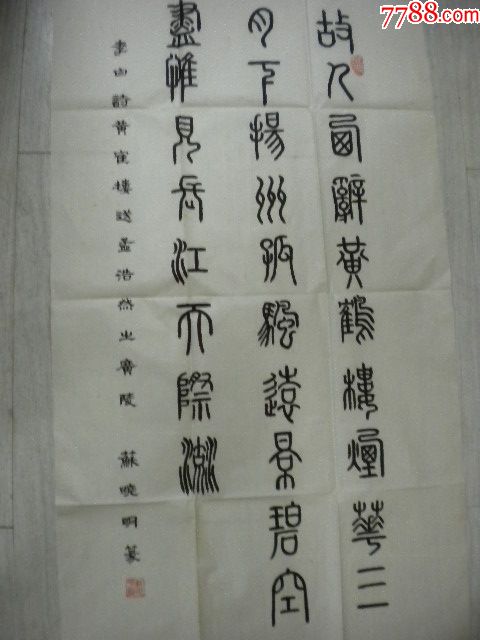 故人西辭黃鶴樓煙華三
月下揚州孤颿遠景碧空
盡惟見長江天際流
李白詩黃隺樓送孟浩然之廣陵 蘇曉明篆
7788.com